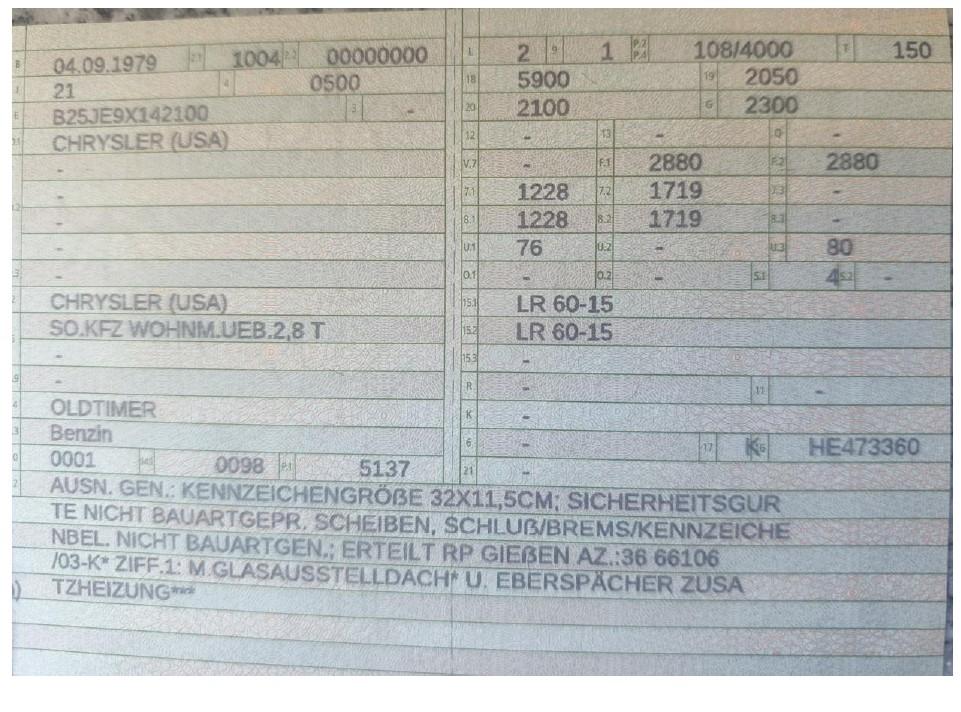 B 04.09.1979 2.1 1004 2.2 00000000
J 21 4 0500
E B25JE9X142100 3 -
D.1 CHRYSLER (USA)
-
-
-
-
-
CHRYSLER (USA)
SO.KFZ WOHNM.UEB.2,8 T
-
-
OLDTIMER
Benzin
0001 0098 P.1 5137
L 2 9 1 P.2 P.4 108/4000 T 150
18 5900 19 2050
20 2100 G 2300
12 - 13 - Q -
V.7 - F.1 2880 F.2 2880
7.1 1228 7.2 1719 7.3 -
8.1 1228 8.2 1719 8.3 -
U.1 76 U.2 - U.3 80
O.1 - O.2 - S.1 4 S.2 -
15.1 LR 60-15
15.2 LR 60-15
15.3 -
R - 11 -
K -
6 - 17 K 16 HE473360
21 -
AUSN. GEN.: KENNZEICHENGRÖßE 32X11,5CM; SICHERHEITSGUR
TE NICHT BAUARTGEPR. SCHEIBEN, SCHLUß/BREMS/KENNZEICHE
NBEL. NICHT BAUARTGEN.; ERTEILT RP GIEßEN AZ.:36 66106
/03-K* ZIFF.1: M.GLASAUSSTELLDACH* U. EBERSPÄCHER ZUSA
TZHEIZUNG***